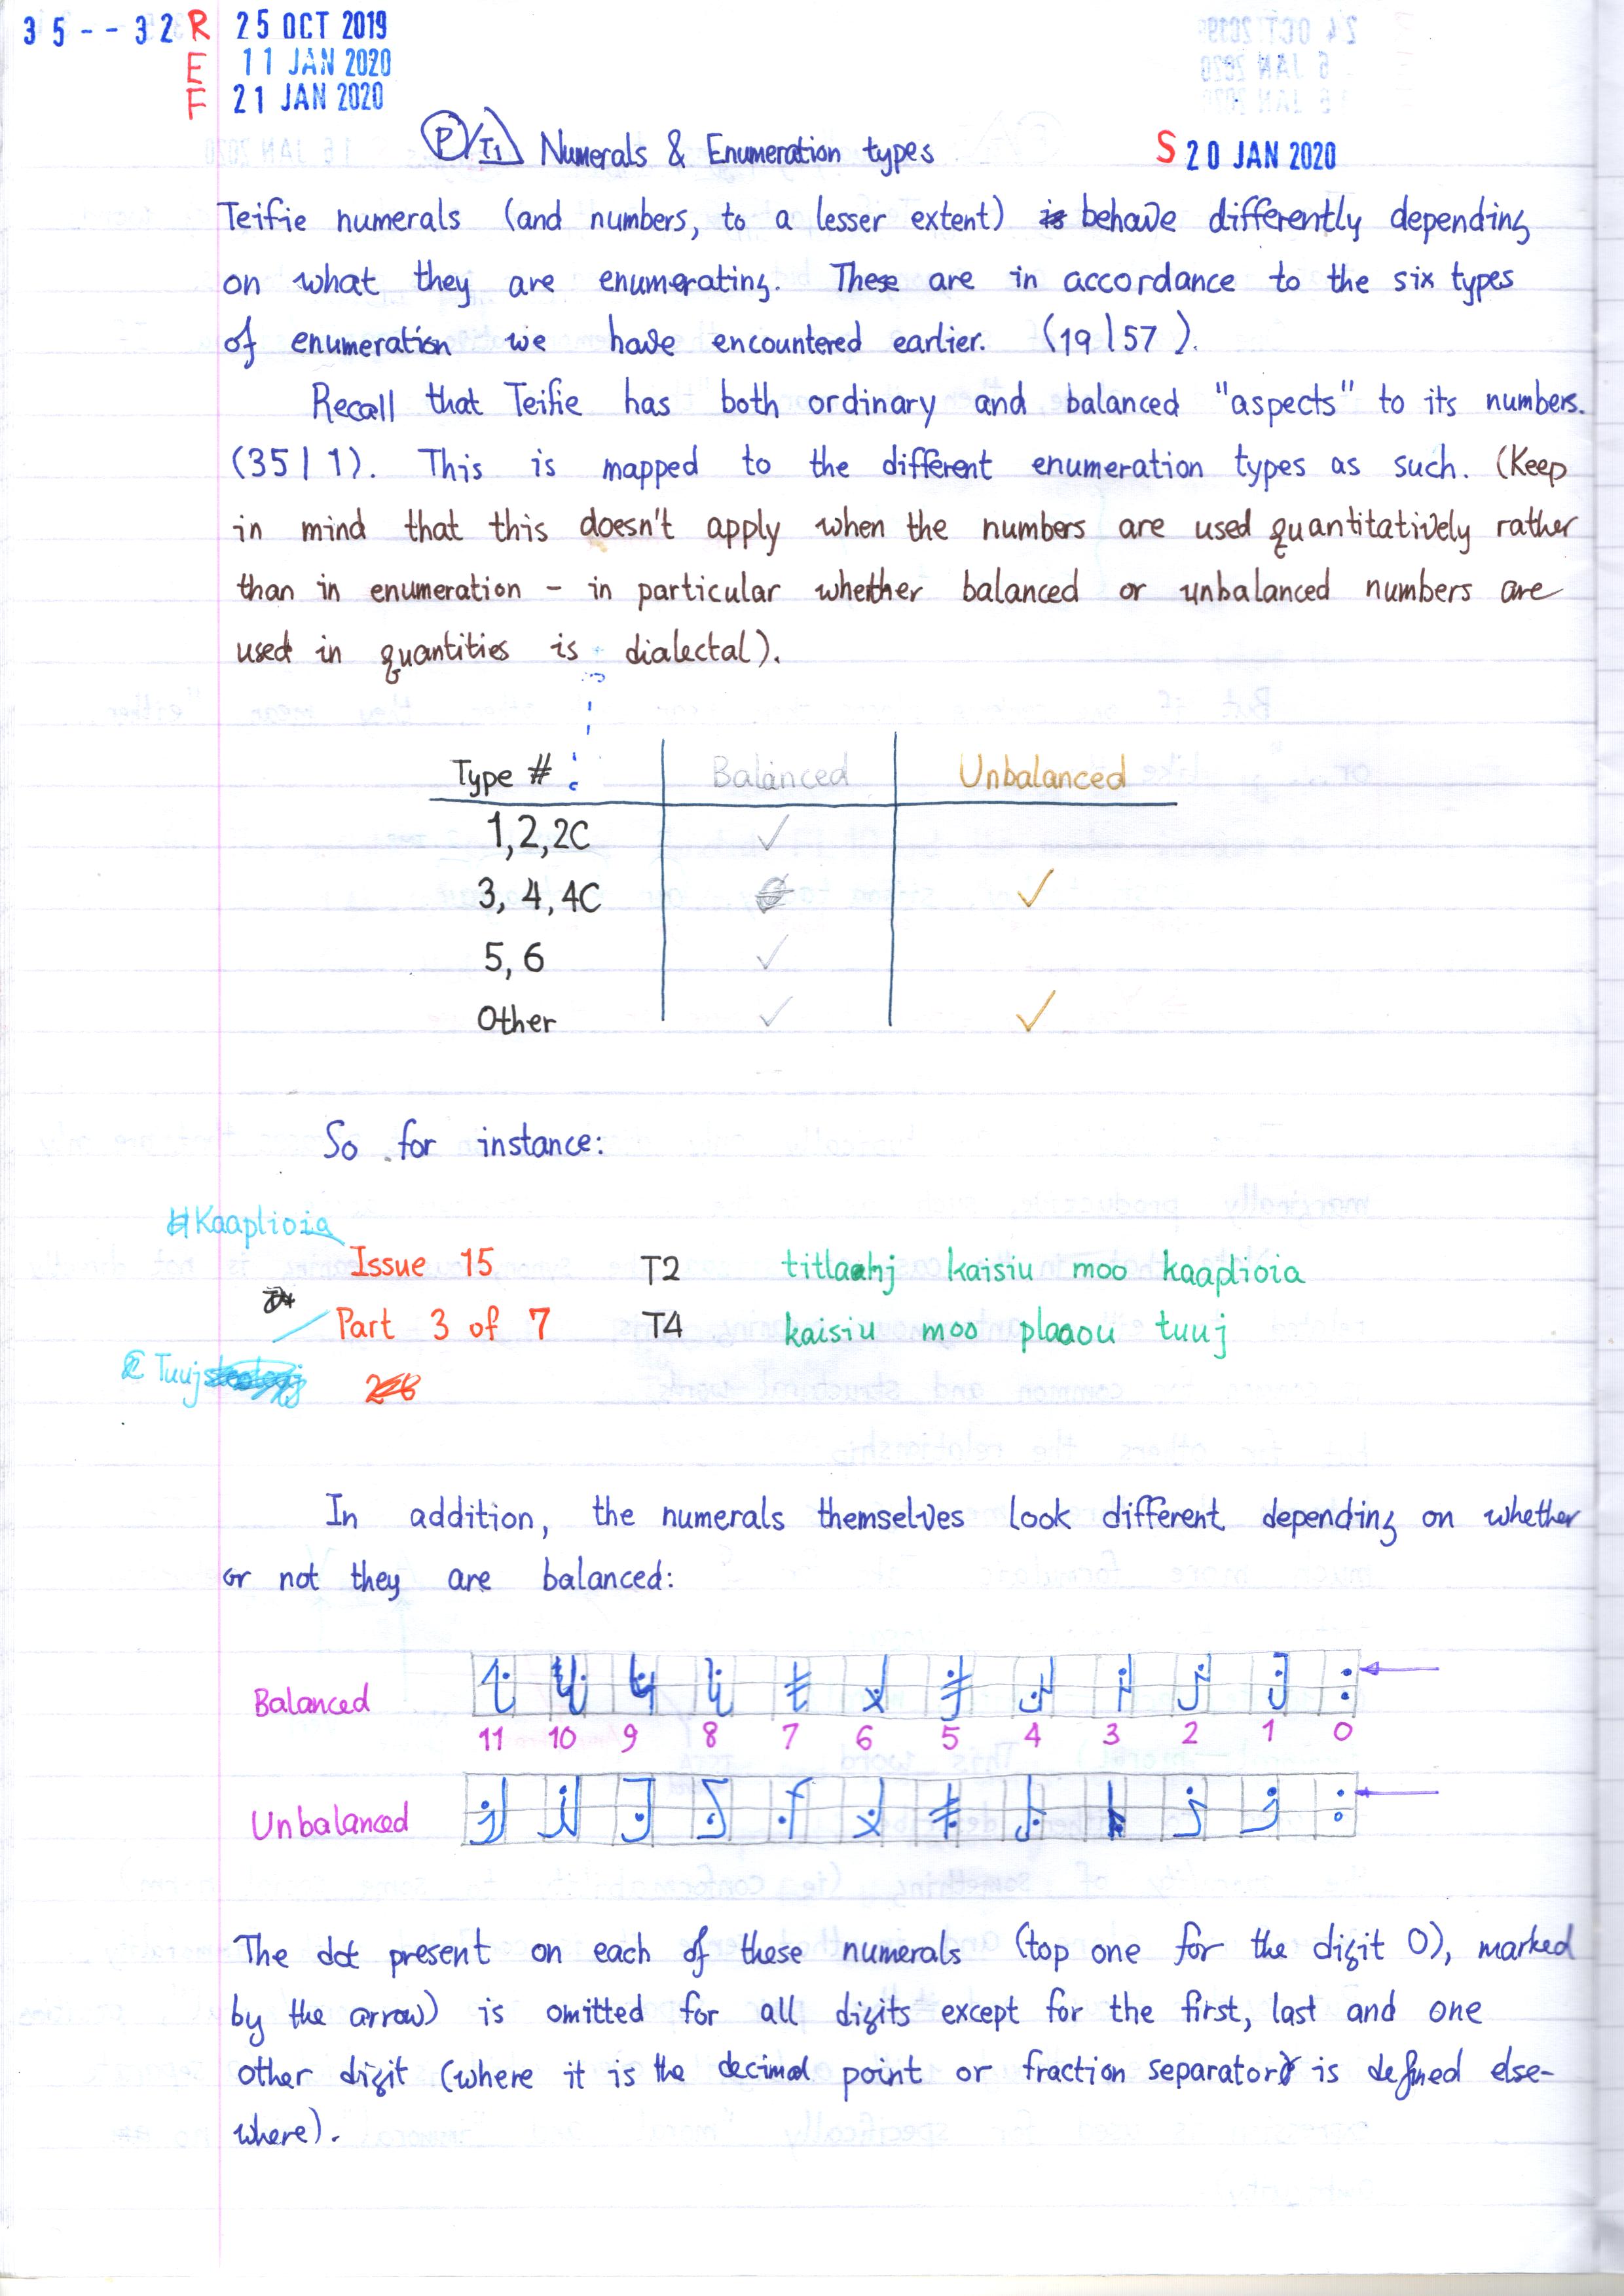 35--32 R 25 OCT 2019
E 11 JAN 2020
F 21 JAN 2020
P/T1 Numerals & Enumeration types S 20 JAN 2020
Teifie numerals (and numbers, to a lesser extent) is behave differently depending
on what they are enumerating. These are in accordance to the six types
of enumeration we have encountered earlier. (19|57).
Recall that Teifie has both ordinary and balanced "aspects" to its numbers.
(35|1). This is mapped to the different enumeration types as such. (Keep
in mind that this doesn't apply when the numbers are used quantitatively rather
than in enumeration - in particular whether balanced or unbalanced numbers are
used in quantities is dialectal).
Type # Balanced Unbalanced
1,2,2C ✓
3, 4, 4C ✓
5, 6 ✓
Other ✓ ✓
So for instance:
Kaaplioia
Issue 15 T2 titlaahj kaisiu moo kaaplioia
Part 3 of 7 T4 kaisiu moo plaaou tuuj
Tuuj
In addition, the numerals themselves look different depending on whether
or not they are balanced:
Balanced
11 10 9 8 7 6 5 4 3 2 1 0
Unbalanced
The dot present on each of these numerals (top one for the digit 0), marked
by the arrow) is omitted for all digits except for the first, last and one
other digit (where it is the decimal point or fraction separator is defined else-
where).